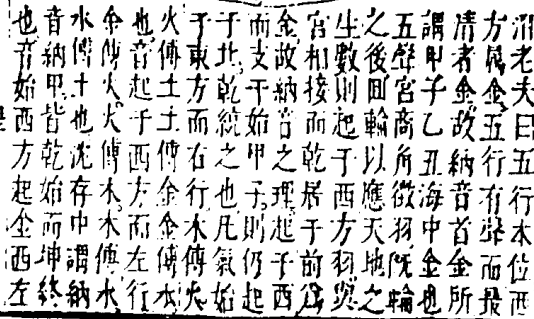 沼老夫曰五行本位西
方屬金五行有聲而最
清者金故納音首金所
謂甲子乙丑海中金也
五聲宮商角徵羽既輪
之後回輪以應天地之
生數則起于西方羽與
宮相接而乾居于前爲
金故納音之理起于西
而支干始甲子則仍起
于北乾統之也凡氣始
于東方而右行木傳火
火傳土土傳金金傳水
也音起于西方而左行
金傳火火傳木木傳水
水傳土也沈存中謂納
音納甲皆乾始而坤終
也音始西方起金西左